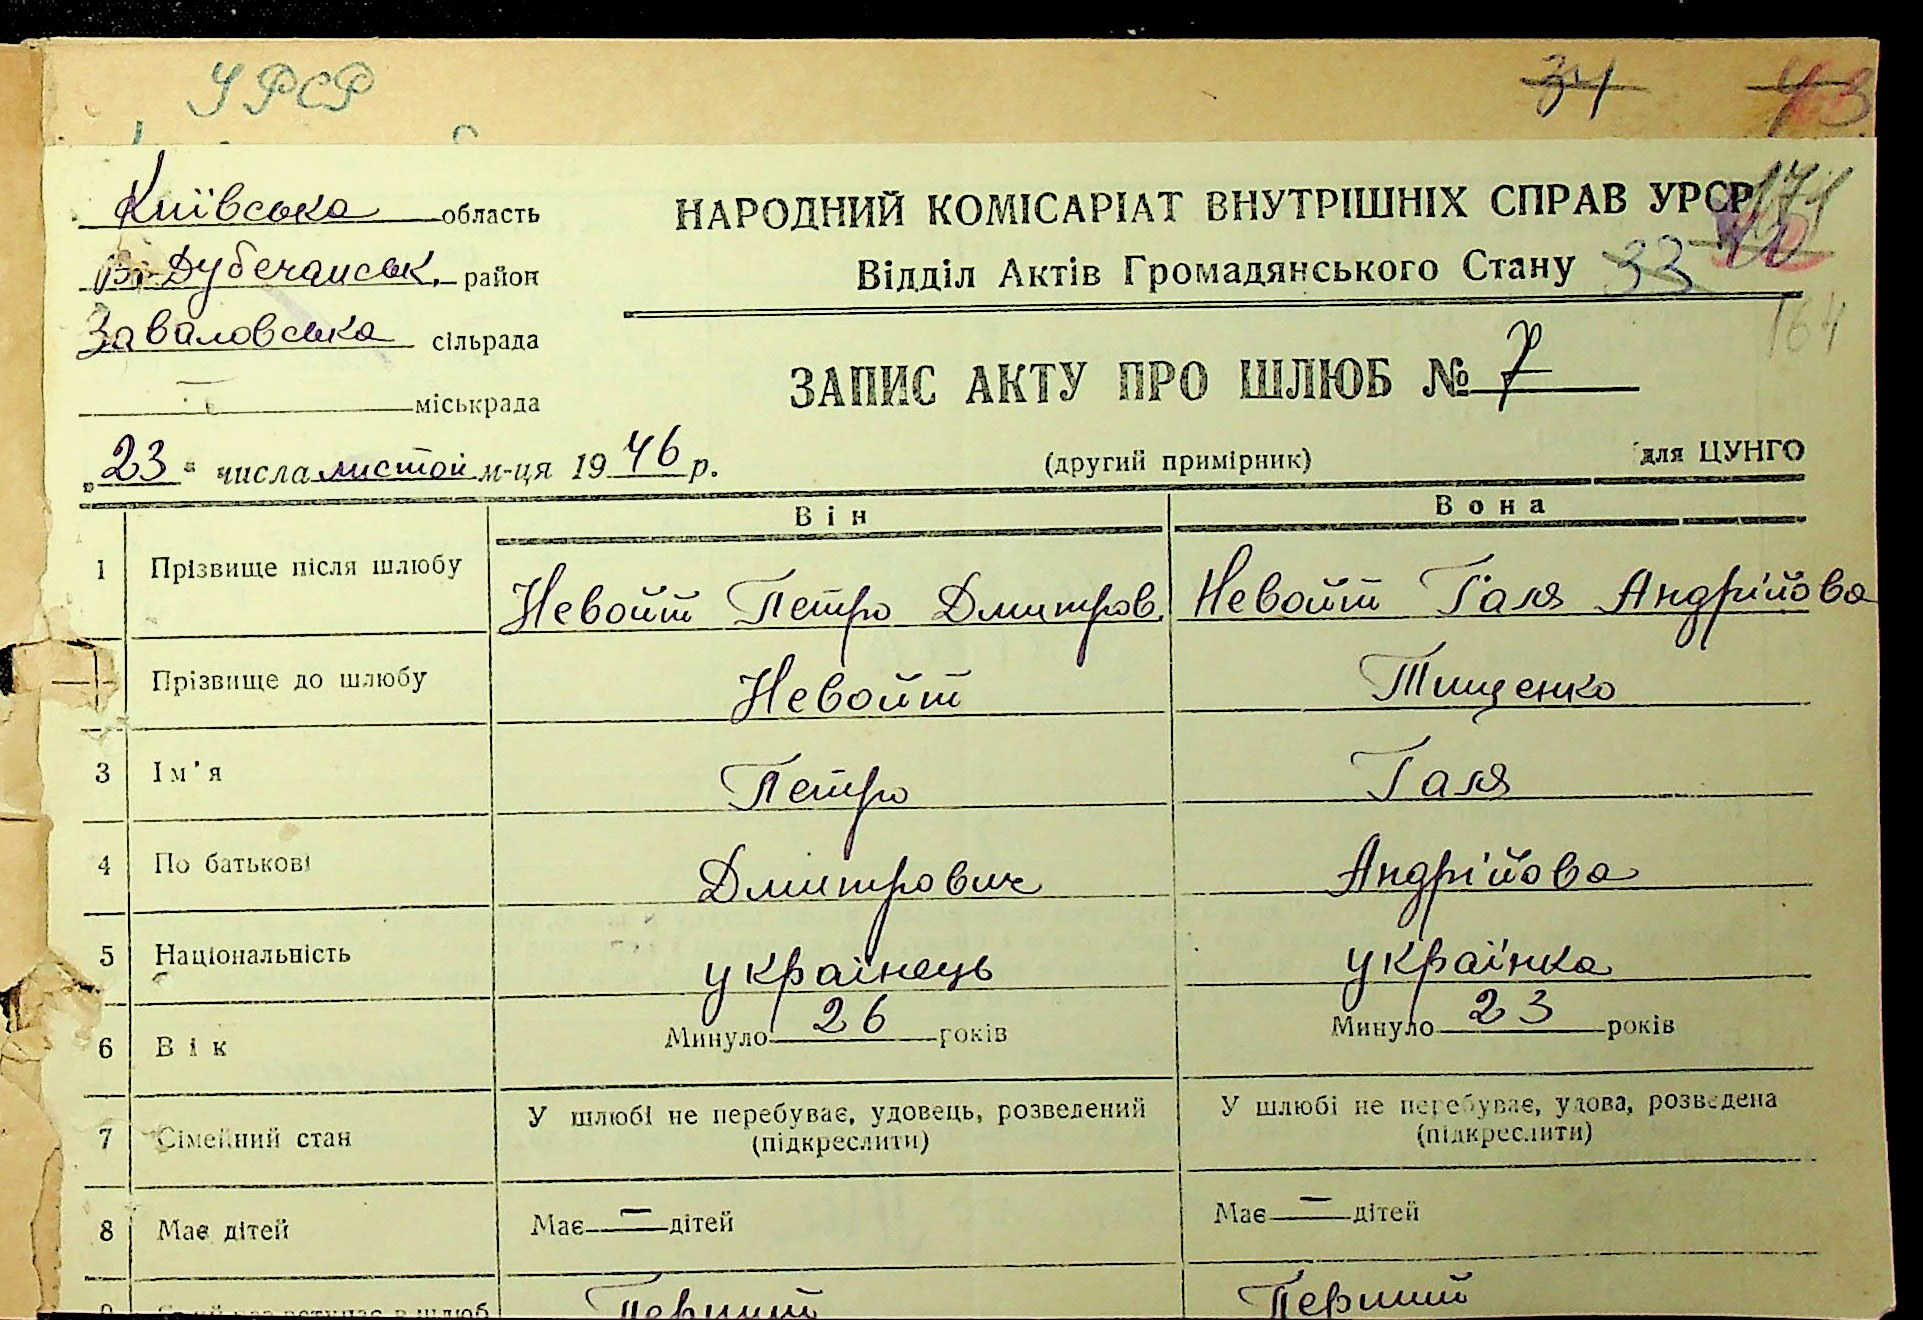 УРСР
34 43
Київська область
НАРОДНИЙ КОМІСАРІАТ ВНУТРІШНІХ СПРАВ УРСР
171
В.-Дубечанськ. район
Відділ Актів Громадянського Стану 33
164
Заваловська сільрада
— міськрада
ЗАПИС АКТУ ПРО ШЛЮБ № 7
„23" числа листоп м-ця 1946 р.
(другий примірник)
для ЦУНГО
Він Вона
1 Прізвище після шлюбу Невойт Петро Дмитров. Невойт Галя Андрійова
Прізвище до шлюбу Невойт Тищенко
3 Ім'я Петро Галя
4 По батькові Дмитрович Андрійова
5 Національність українець українка
6 Вік Минуло 26 років Минуло 23 років
7 Сімейний стан У шлюбі не перебуває, удовець, розведений У шлюбі не перебуває, удова, розведена
(підкреслити) (підкреслити)
8 Має дітей Має — дітей Має — дітей
9 раз вступає в шлюб Перший Перший